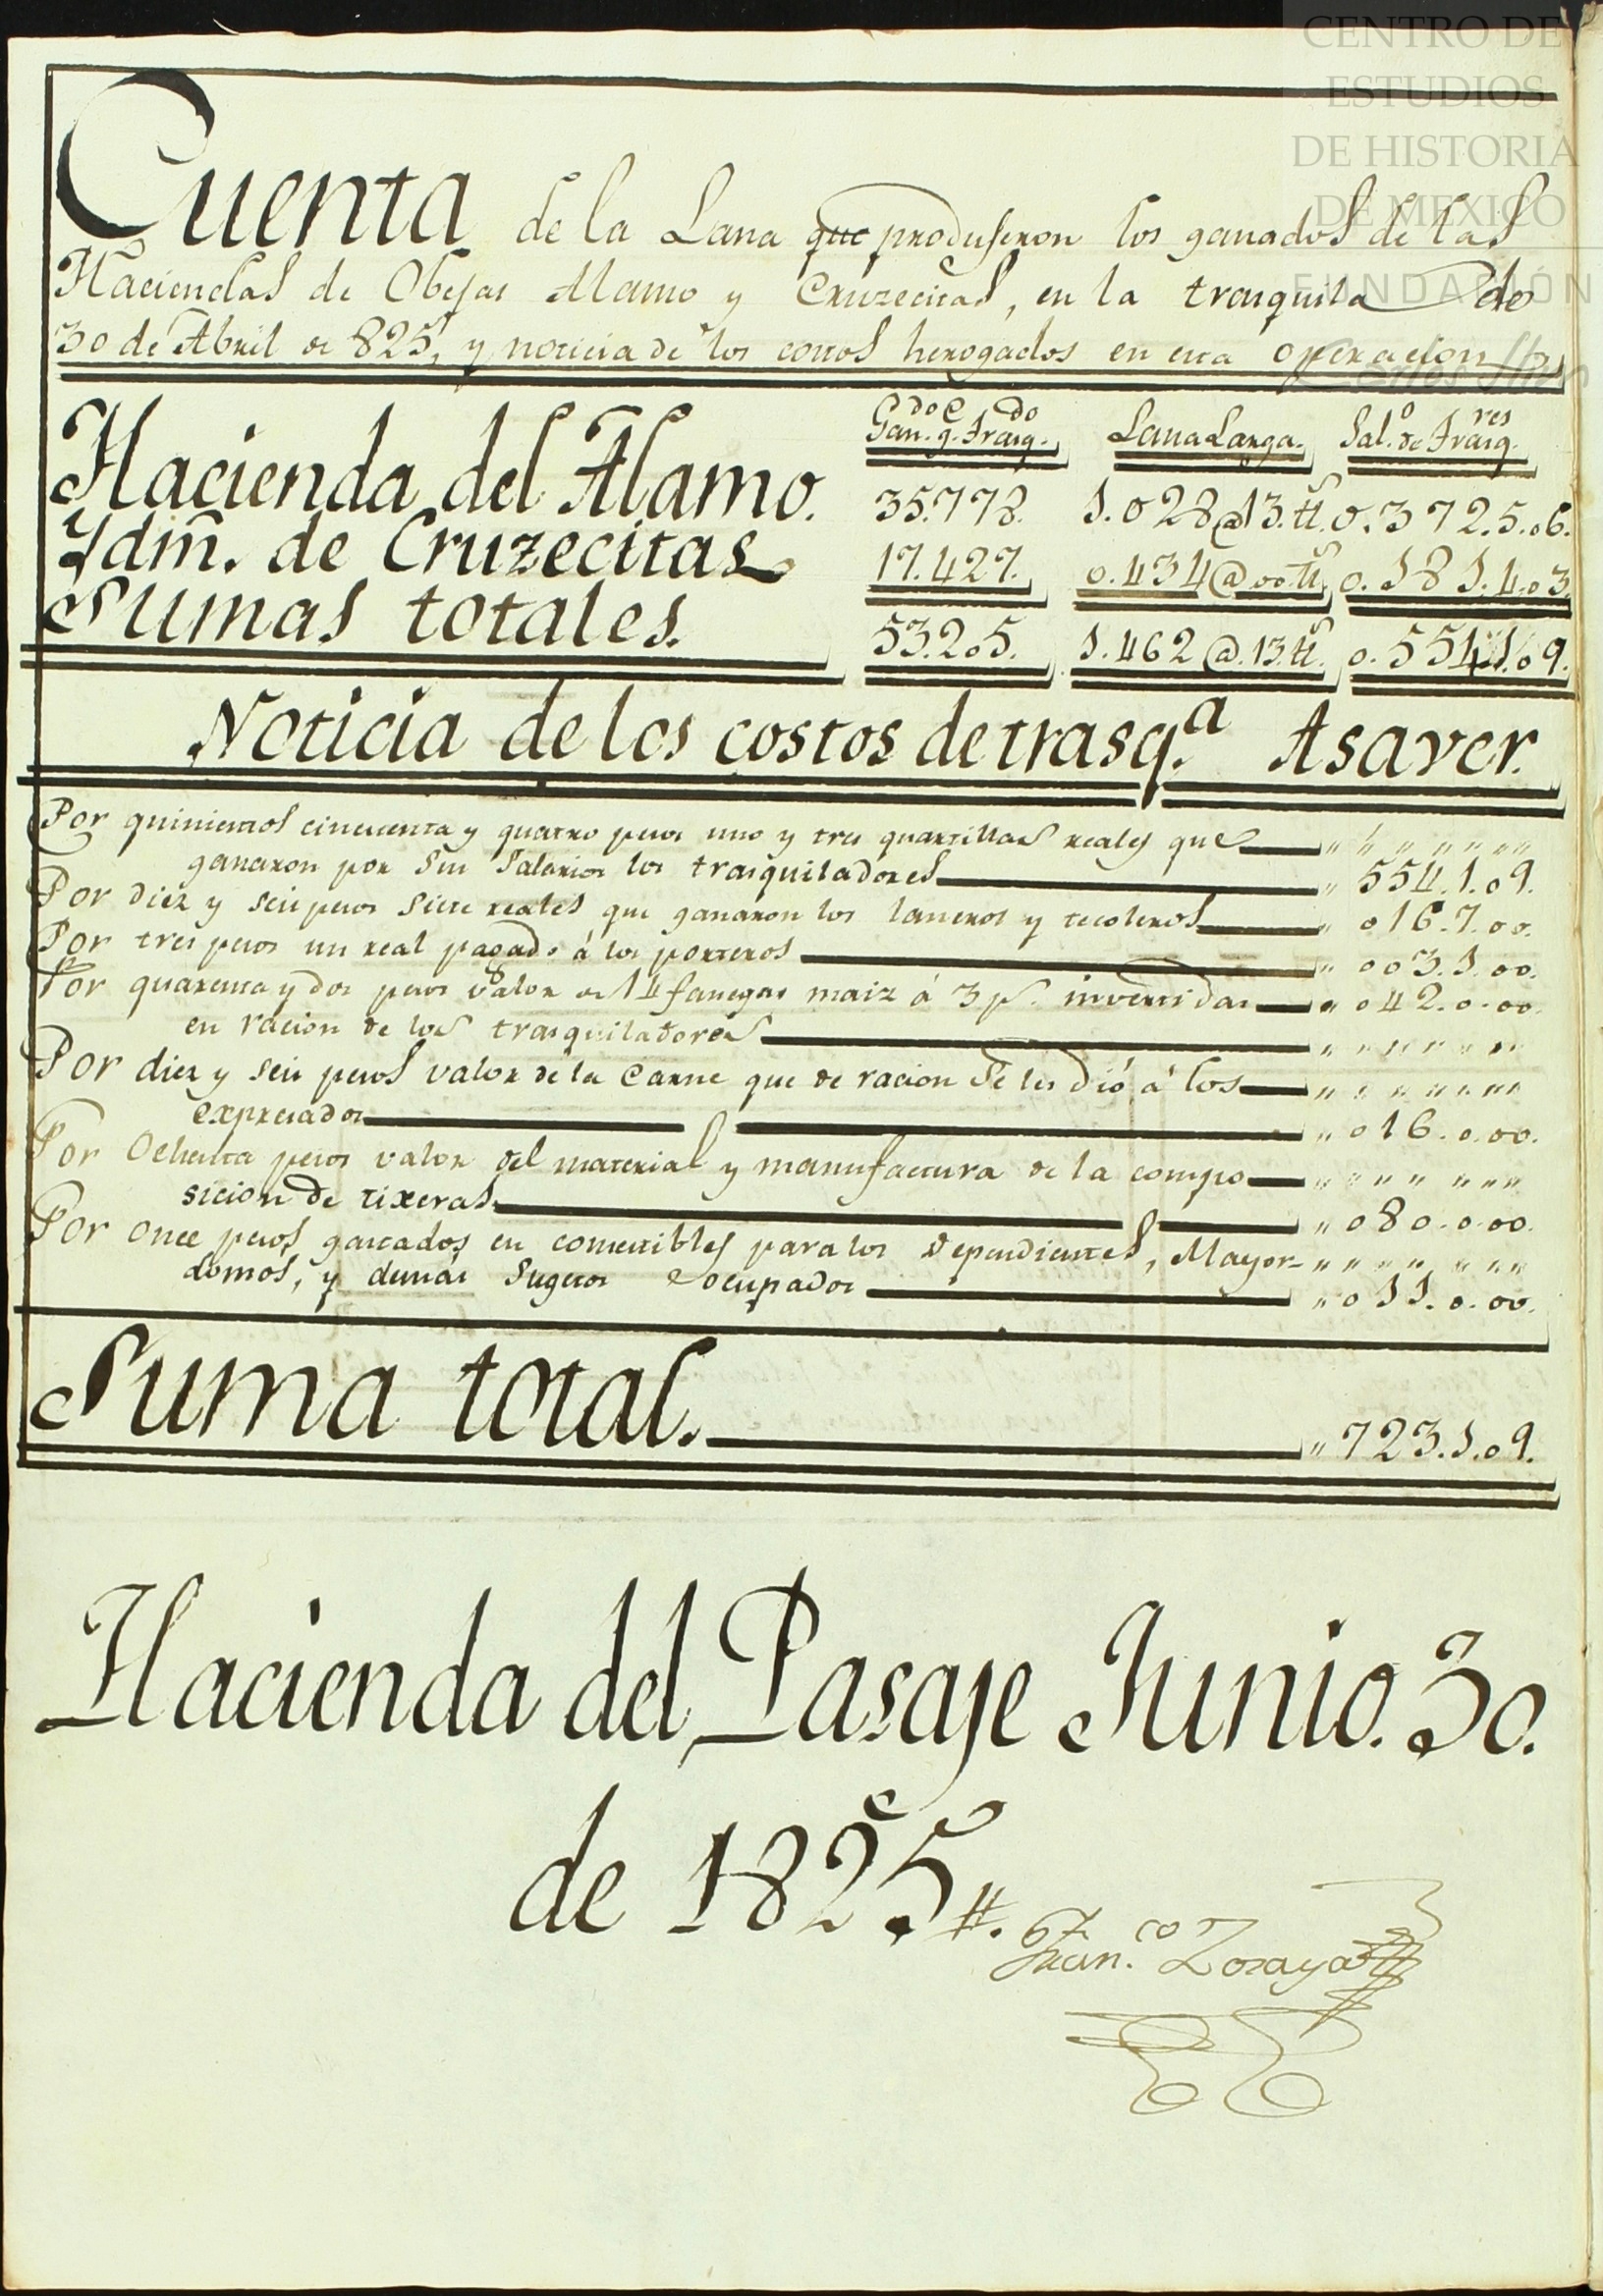 CENTRO DE
ESTUDIOS
DE HISTORIA
DE MEXICO
FUNDACIÓN
Cuenta de la Lana que produjeron los ganados de las
Haciendas de Obejas Alamo y Cruzecitas, en la trasquila de
30 de Abril de 825, y noticia de los costos herogados en esta operacion
Gan.do q.e Trasq.do Lana Larga. Sal.o de Trasq.res
Hacienda del Alamo. 35.778. 1.028@13.tt.s 0.372.5.06.
Ydm. de Cruzecitas 17.427. 0.434@00.tt.s 0.181.4.03.
Sumas totales. 53.205. 1.462@.13.tt.s 0.554.1.09.
Noticia de los costos de trasq.a Asaver.
Por quinientos cincuenta y quatro pesos uno y tres quartillas reales que „ „ „ „ „ „ „
ganaron por sus Salarios los trasquiladores „ 554.1.09.
Por diez y seis pesos siete reales que ganaron los laneros y recoleros „ 016.7.00.
Por tres pesos un real pagado á los porteros „ 003.1.00.
Por quarenta y dos pesos valor de 14 fanegas maiz á 3 ps. invertidas „ 042.0.00.
en racion de los trasquiladores „ „ „ „ „ „ „
Por diez y seis pesos valor de la Carne que de racion Se les dió á los „ „ „ „ „ „ „
expresados „ 016.0.00.
Por Ochenta pesos valor del material y manufactura de la compo „ „ „ „ „ „ „
sicion de tixeras „ 080.0.00.
Por once pesos gastados en comestibles para los Dependientes, Mayor- „ „ „ „ „ „ „
domos, y demás Sugetos ocupados „ 011.0.00.
Suma total. „ 723.1.09.
Hacienda del Pasaje Junio. 30.
de 1825
Fran.co Loraya